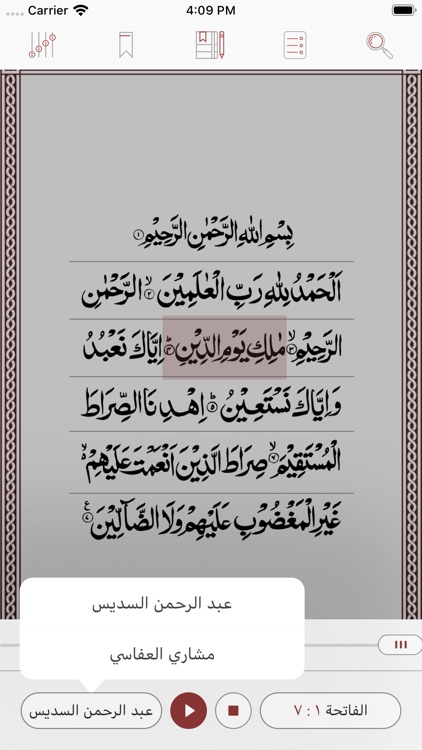 Carrier 4:09 PM
بِسْمِ اللهِ الرَّحْمٰنِ الرَّحِيْمِ ۝۱
اَلْحَمْدُ لِلّٰهِ رَبِّ الْعٰلَمِيْنَ ۙ۝۲ الرَّحْمٰنِ
الرَّحِيْمِ ۙ۝۳ مٰلِكِ يَوْمِ الدِّيْنِ ۝۴ؕ اِيَّاكَ نَعْبُدُ
وَ اِيَّاكَ نَسْتَعِيْنُ ۝۵ؕ اِهْدِنَا الصِّرَاطَ
الْمُسْتَقِيْمَ ۙ۝ صِرَاطَ الَّذِيْنَ اَنْعَمْتَ عَلَيْهِمْ ۙ
غَيْرِ الْمَغْضُوْبِ عَلَيْهِمْ وَلَا الضَّآلِّيْنَ ۝۷ع
عبد الرحمن السديس
مشاري العفاسي
عبد الرحمن السديس
الفاتحة ١ : ٧